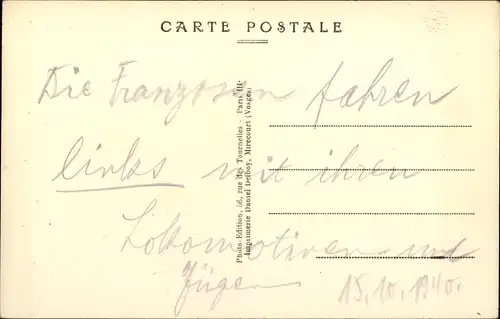 CARTE POSTALE
Die Franzosen fahren
links mit ihren
Lokomotiven und
Zügen
15.10.1940.
Photo-Edition, 56, rue des Tournelles - Paris III.
Imprimerie Daniel Delboy, Mirecourt (Vosges)